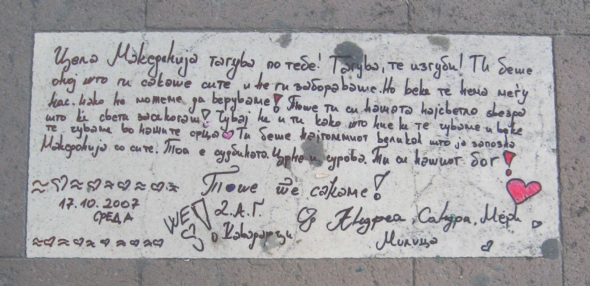 Цела Македонија тагува по тебе! Тагува, те изгуби! Ти беше
оној што ги сакаше сите и не ги забораваше. Но веќе те нема меѓу
нас. Како да веруваме! Тоше ти си нашата најсветла ѕвезда
што ќе свети засекогаш! Чувај не и ти како што ние ќе те чуваме и веќе
те чуваме во нашите срца Ти беше најголемиот великан што ја запозна
Македонија со сите. Тоа е судбината. Црна и сурова. Ти си нашиот бог!
Тоше те сакаме!
17.10.2007
СРЕДА
WE
2.А.Г.
Кавадарци
Андреа, Сандра, Мери
Милица